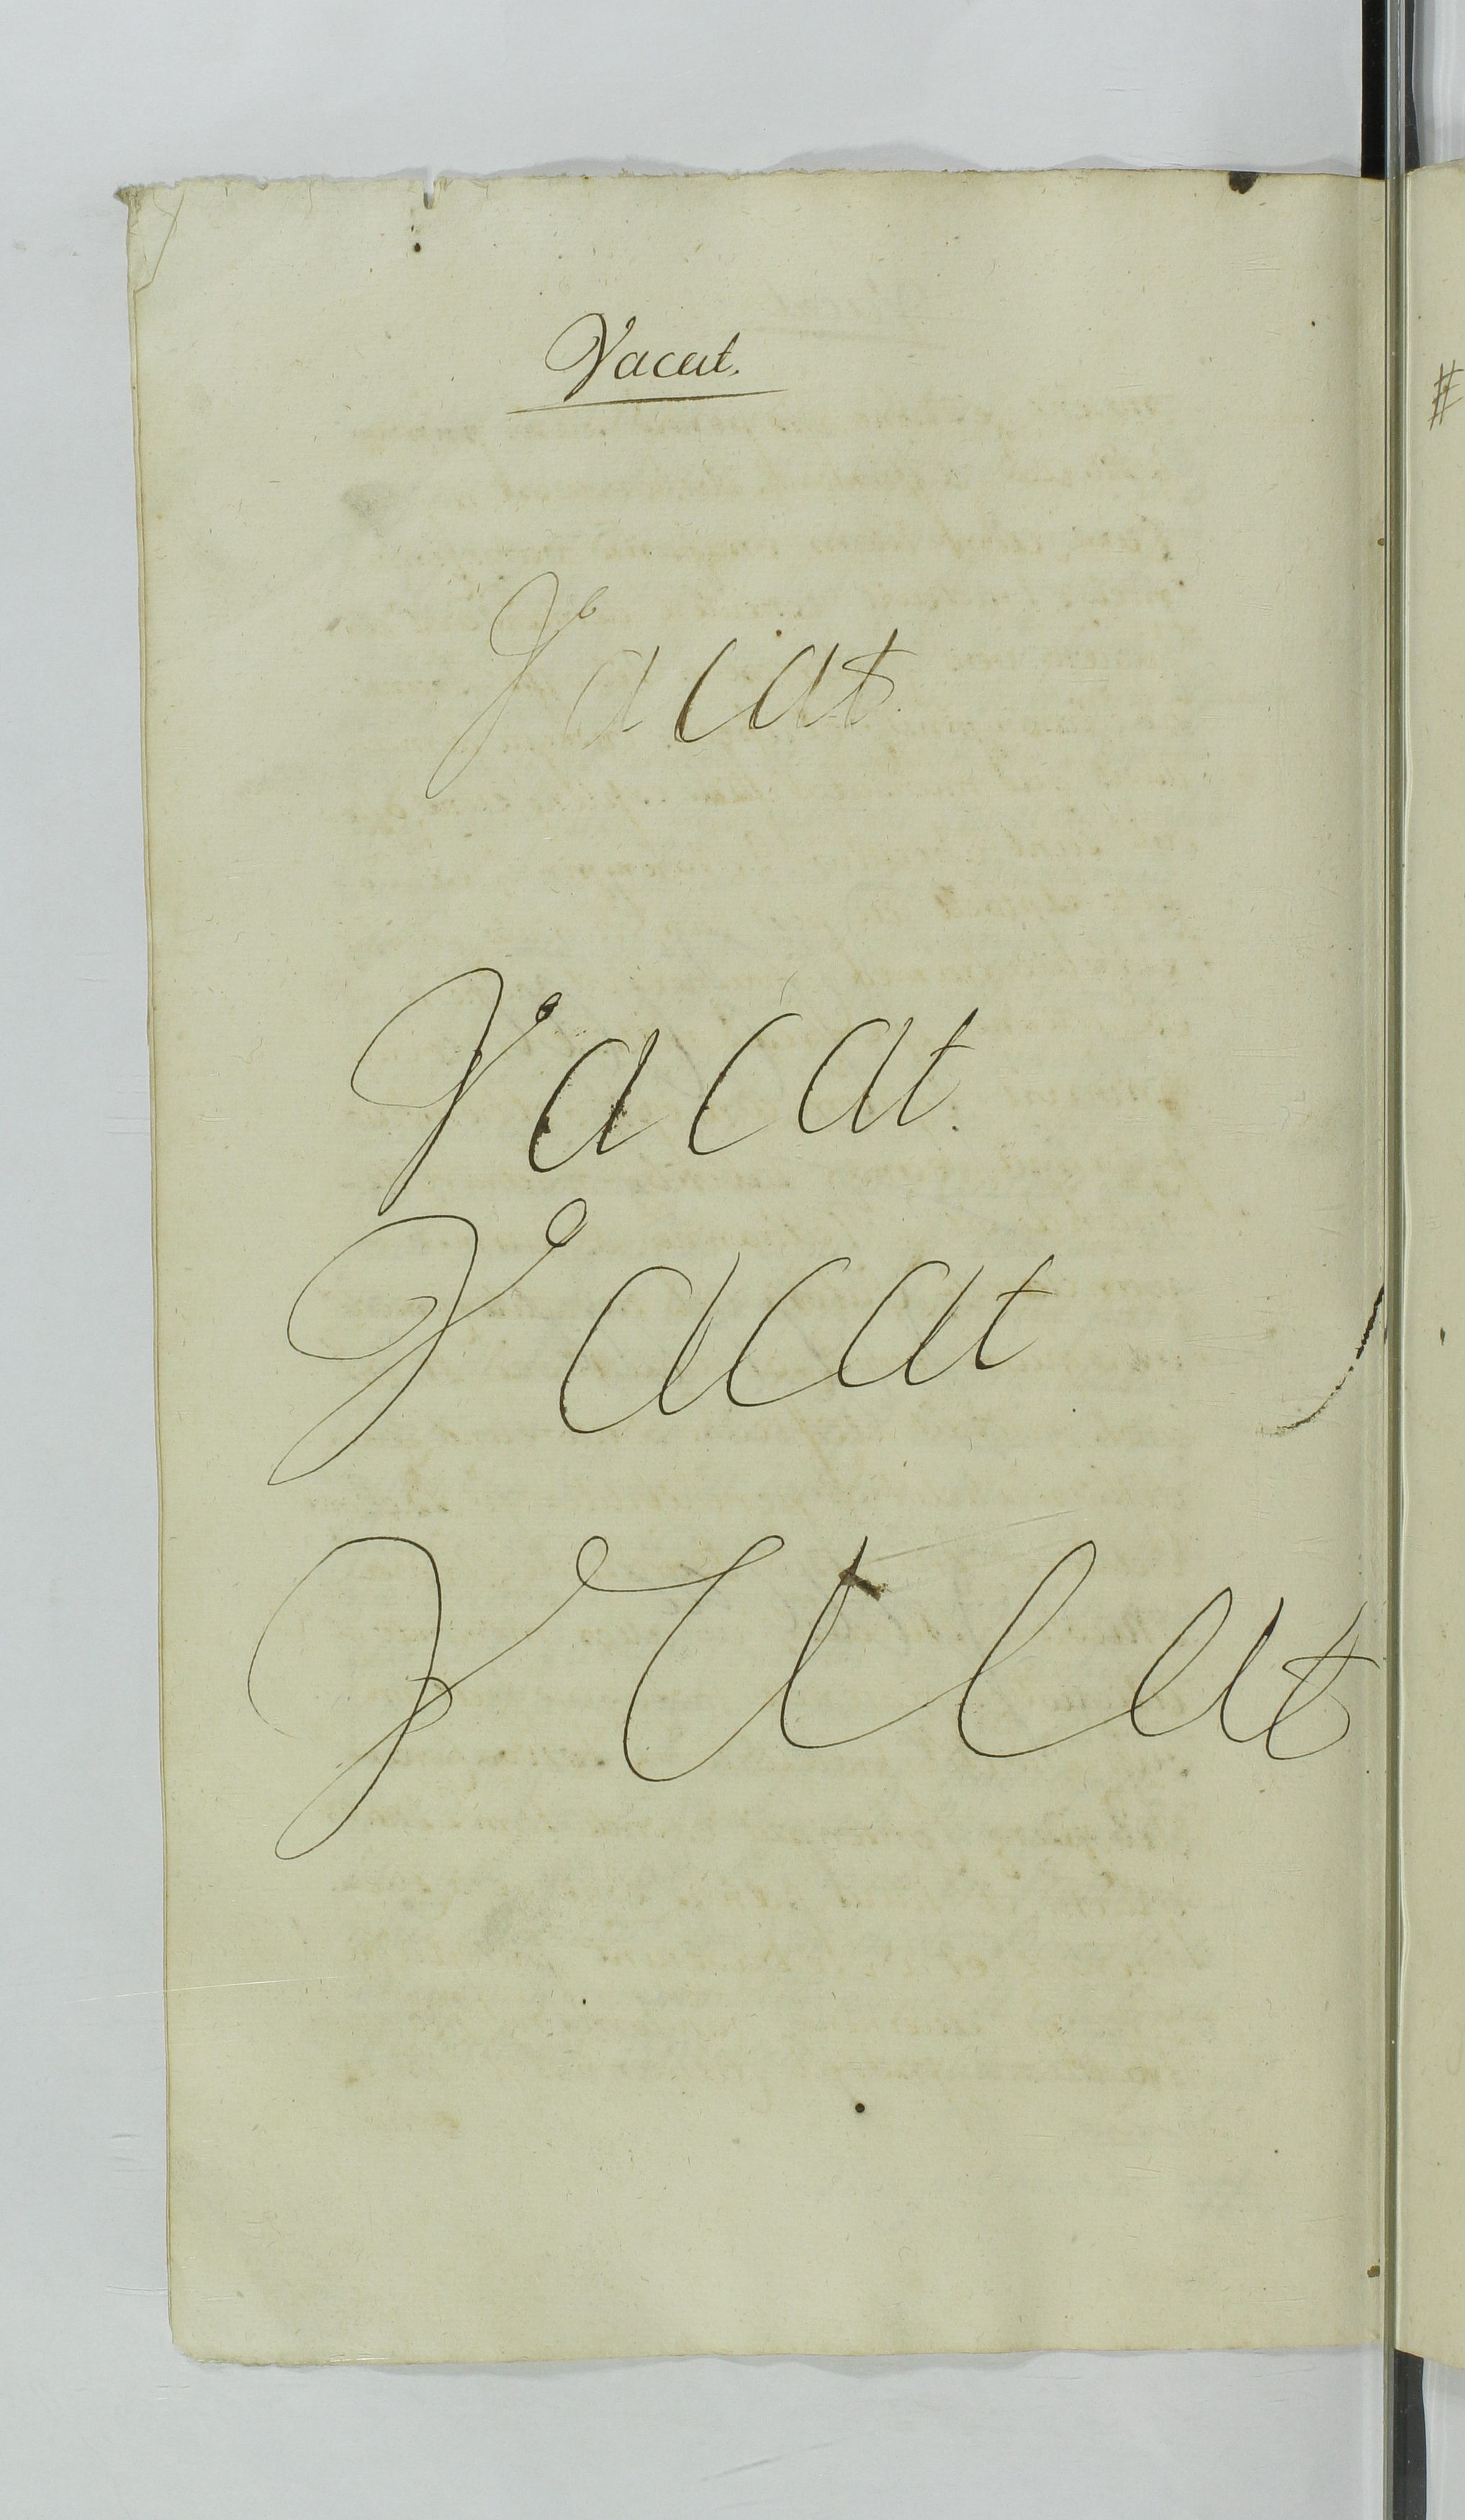 Vacat.
Vacat.
Vacat.
Vacat
Vacat
#